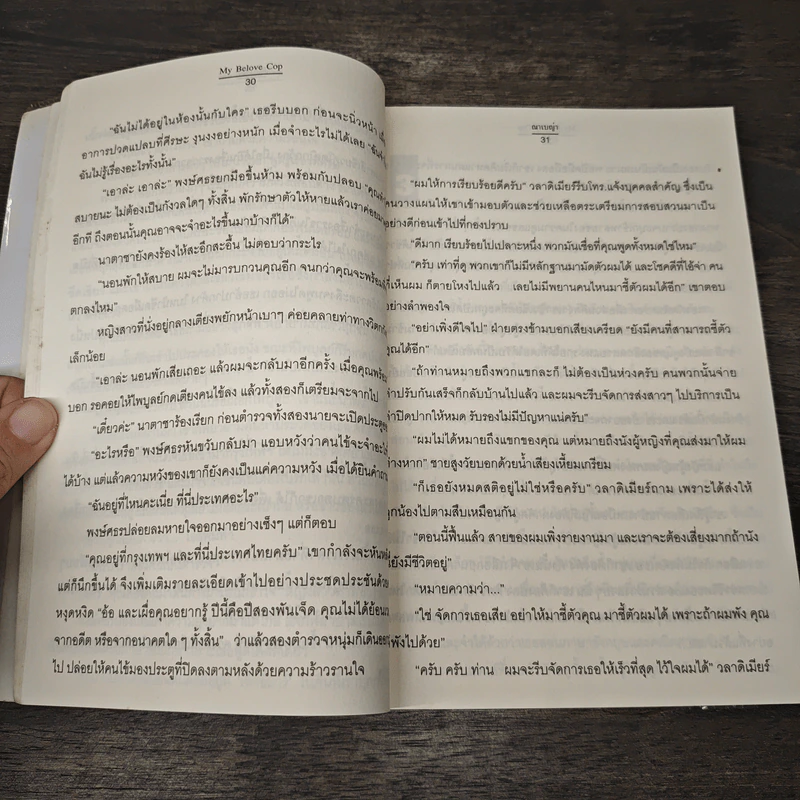 My Belove Cop
30
"ฉันไม่ได้อยู่ในห้องนั้นกับใคร" เธอรีบบอก ก่อนจะนิ่วหน้า
อาการปวดแปลบที่ศีรษะ งุนงงอย่างหนัก เมื่อจำอะไรไม่ได้เลย
ฉันไม่รู้เรื่องอะไรทั้งนั้น"
"เอาล่ะ เอาล่ะ" พงษ์ศธรยกมือขึ้นห้าม พร้อมกับปลอบ
สบายนะ ไม่ต้องเป็นกังวลใดๆ ทั้งสิ้น พักรักษาตัวให้หายแล้วเราค่อย
อีกที ถึงตอนนั้นคุณอาจจะจำอะไรขึ้นมาบ้างก็ได้"
นาตาซายังคงร้องไห้สะอึกสะอื้น ไม่ตอบว่ากระไร
"นอนพักให้สบาย ผมจะไม่มารบกวนคุณอีก จนกว่าคุณจะพร้อม
ตกลงไหม"
หญิงสาวที่นั่งอยู่กลางเตียงพยักหน้าเบาๆ ค่อยคลายท่าทางวิตก
เล็กน้อย
"เอาล่ะ นอนพักเสียเถอะ แล้วผมจะกลับมาอีกครั้ง เมื่อคุณ
บอก รอคอยให้ไพบูลย์กดเตียงคนไข้ลง แล้วทั้งสองก็เตรียมจะจากไป
"เดี๋ยวค่ะ" นาตาซาร้องเรียก ก่อนตำรวจทั้งสองนายจะเปิดประตู
"อะไรหรือ" พงษ์ศธรหันขวับกลับมา แอบหวังว่าคนไข้จะจำอะไร
ได้บ้าง แต่แล้วความหวังของเขาก็ยังคงเป็นแค่ความหวัง เมื่อได้ยินคำถาม
"ฉันอยู่ที่ไหนคะเนี่ย ที่นี่ประเทศอะไร"
พงษ์ศธรปล่อยลมหายใจออกมาอย่างเซ็งๆ แต่ก็ตอบ
"คุณอยู่ที่กรุงเทพฯ และที่นี่ประเทศไทยครับ" เขากำลังจะหัน
แต่ก็นึกขึ้นได้ จึงเพิ่มเติมรายละเอียดเข้าไปอย่างประชดประชันด้วย
หงุดหงิด "อ้อ และเผื่อคุณอยากรู้ ปีนี้คือปีสองพันเจ็ด คุณไม่ได้ย้อน
จากอดีต หรือจากอนาคตใด ๆ ทั้งสิ้น" ว่าแล้วสองตำรวจหนุ่มก็เดิน
ไป ปล่อยให้คนไข้มองประตูที่ปิดลงตามหลังด้วยความร้าวรานใจ
ณาเบญ่า
31
"ผมให้การเรียบร้อยดีครับ" วลาดิเมียร์รีบโทร.แจ้งบุคคลสำคัญ ซึ่งเป็น
คนวางแผนให้เขาเข้ามอบตัวและช่วยเหลือตระเตรียมการสอบสวนมาเป็น
อย่างดีก่อนเข้าไปที่กองปราบ
"ดีมาก เรียบร้อยไปเปลาะหนึ่ง พวกมันเชื่อที่คุณพูดทั้งหมดใช่ไหม"
"ครับ เท่าที่ดู พวกเขาก็ไม่มีหลักฐานมามัดตัวผมได้ และโชคดีที่ไอ้จ่า คน
ที่เห็นผม ก็ตายโหงไปแล้ว เลยไม่มีพยานคนไหนมาชี้ตัวผมได้อีก" เขาตอบ
อย่างลำพองใจ
"อย่าเพิ่งดีใจไป" ฝ่ายตรงข้ามบอกเสียงเครียด "ยังมีคนที่สามารถชี้ตัว
คุณได้อีก"
"ถ้าท่านหมายถึงพวกแขกละก็ ไม่ต้องเป็นห่วงครับ คนพวกนั้นจ่าย
ค่าปรับกันเสร็จก็กลับบ้านไปแล้ว และผมจะรีบจัดการส่งสาวๆ ไปบริการเป็น
ค่าปิดปากให้หมด รับรองไม่มีปัญหาแน่ครับ"
"ผมไม่ได้หมายถึงแขกของคุณ แต่หมายถึงนังผู้หญิงที่คุณส่งมาให้ผม
ต่างหาก" ชายสูงวัยบอกด้วยน้ำเสียงเหี้ยมเกรียม
"ก็เธอยังหมดสติอยู่ไม่ใช่หรือครับ" วลาดิเมียร์ถาม เพราะได้ส่งให้
ลูกน้องไปตามสืบเหมือนกัน
"ตอนนี้ฟื้นแล้ว สายของผมเพิ่งรายงานมา และเราจะต้องเสี่ยงมากถ้านัง
ยังมีชีวิตอยู่"
"หมายความว่า..."
"ใช่ จัดการเธอเสีย อย่าให้มาชี้ตัวคุณ มาชี้ตัวผมได้ เพราะถ้าผมพัง คุณ
ก็พังไปด้วย"
"ครับ ครับ ท่าน ผมจะรีบจัดการเธอให้เร็วที่สุด ไว้ใจผมได้" วลาดิเมียร์